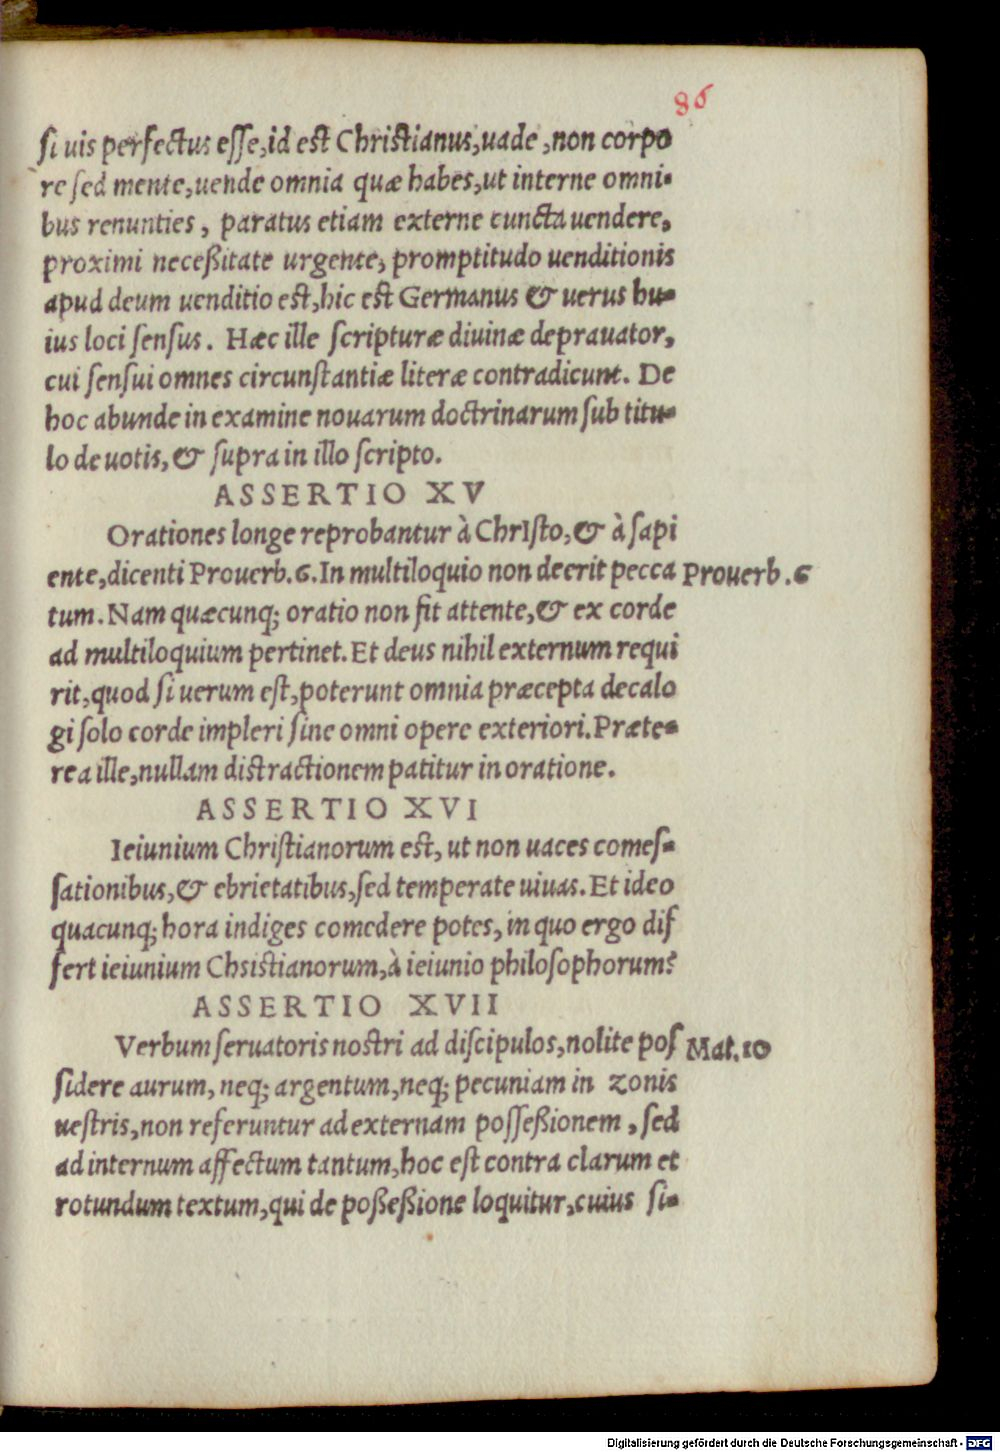 86
si uis perfectus esse, id est Christianus, uade, non corpo
re sed mente, uende omnia quæ habes, ut interne omni-
bus renunties, paratus etiam externe cuncta uendere,
proximi neceßitate urgente, promptitudo uenditionis
apud deum uenditio est, hic est Germanus & uerus hu-
ius loci sensus. Hæc ille scripturæ diuinæ deprauator,
cui sensui omnes circunstantiæ literæ contradicunt. De
hoc abunde in examine nouarum doctrinarum sub titu-
lo de uotis, & supra in illo scripto.
ASSERTIO XV
Orationes longe reprobantur à ChrIsto, & à sapi
ente, dicenti Prouerb. 6. In multiloquio non deerit pecca Prouerb. 6
tum. Nam quæcunq; oratio non fit attente, & ex corde
ad multiloquium pertinet. Et deus nihil externum requi
rit, quod si uerum est, poterunt omnia præcepta decalo
gi solo corde impleri sine omni opere exteriori. Præte-
rea ille, nullam distractionem patitur in oratione.
ASSERTIO XVI
Ieiunium Christianorum est, ut non uaces comes-
sationibus, & ebrietatibus, sed temperate uiuas. Et ideo
quacunq; hora indiges comedere potes, in quo ergo dif
fert ieiunium Chsistianorum, à ieiunio philosophorum?
ASSERTIO XVII
Verbum seruatoris nostri ad discipulos, nolite pos Mat. 10
sidere aurum, neq; argentum, neq; pecuniam in zonis
uestris, non referuntur ad externam posseßionem, sed
ad internum affectum tantum, hoc est contra clarum et
rotundum textum, qui de poßeßione loquitur, cuius si-
Digitalisierung gefördert durch die Deutsche Forschungsgemeinschaft - DFG